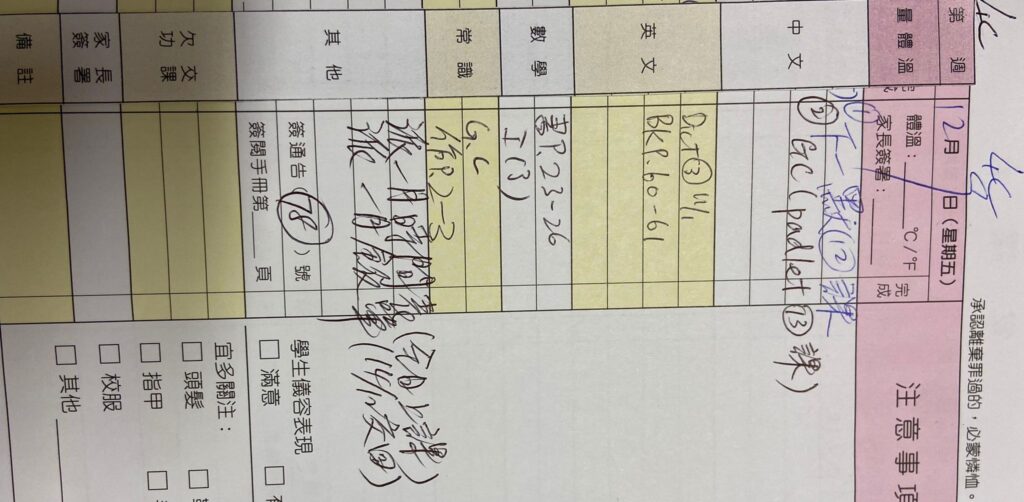 4C
48
承認離棄罪過的，必蒙憐恤。
第 週
12月 日(星期五)
注意事項
量體溫
體溫：____ °C/°F
家長簽署：____
完成
中文
十一點(12)課
② GC (padlet ⑬ 課)
英文
Dict ③ 11/1
BK P.60-61
數學
書 P.23-26
工(3)
常識
G.C
P.2-3
其他
派一月時間表(今日上課)
派一月飯單(14/12交回)
簽通告( 78 )號
簽閱手冊第____頁
欠交功課
家長簽署
備註
學生儀容表現
□ 滿意
宜多關注：
□ 頭髮
□ 指甲
□ 校服
□ 其他____